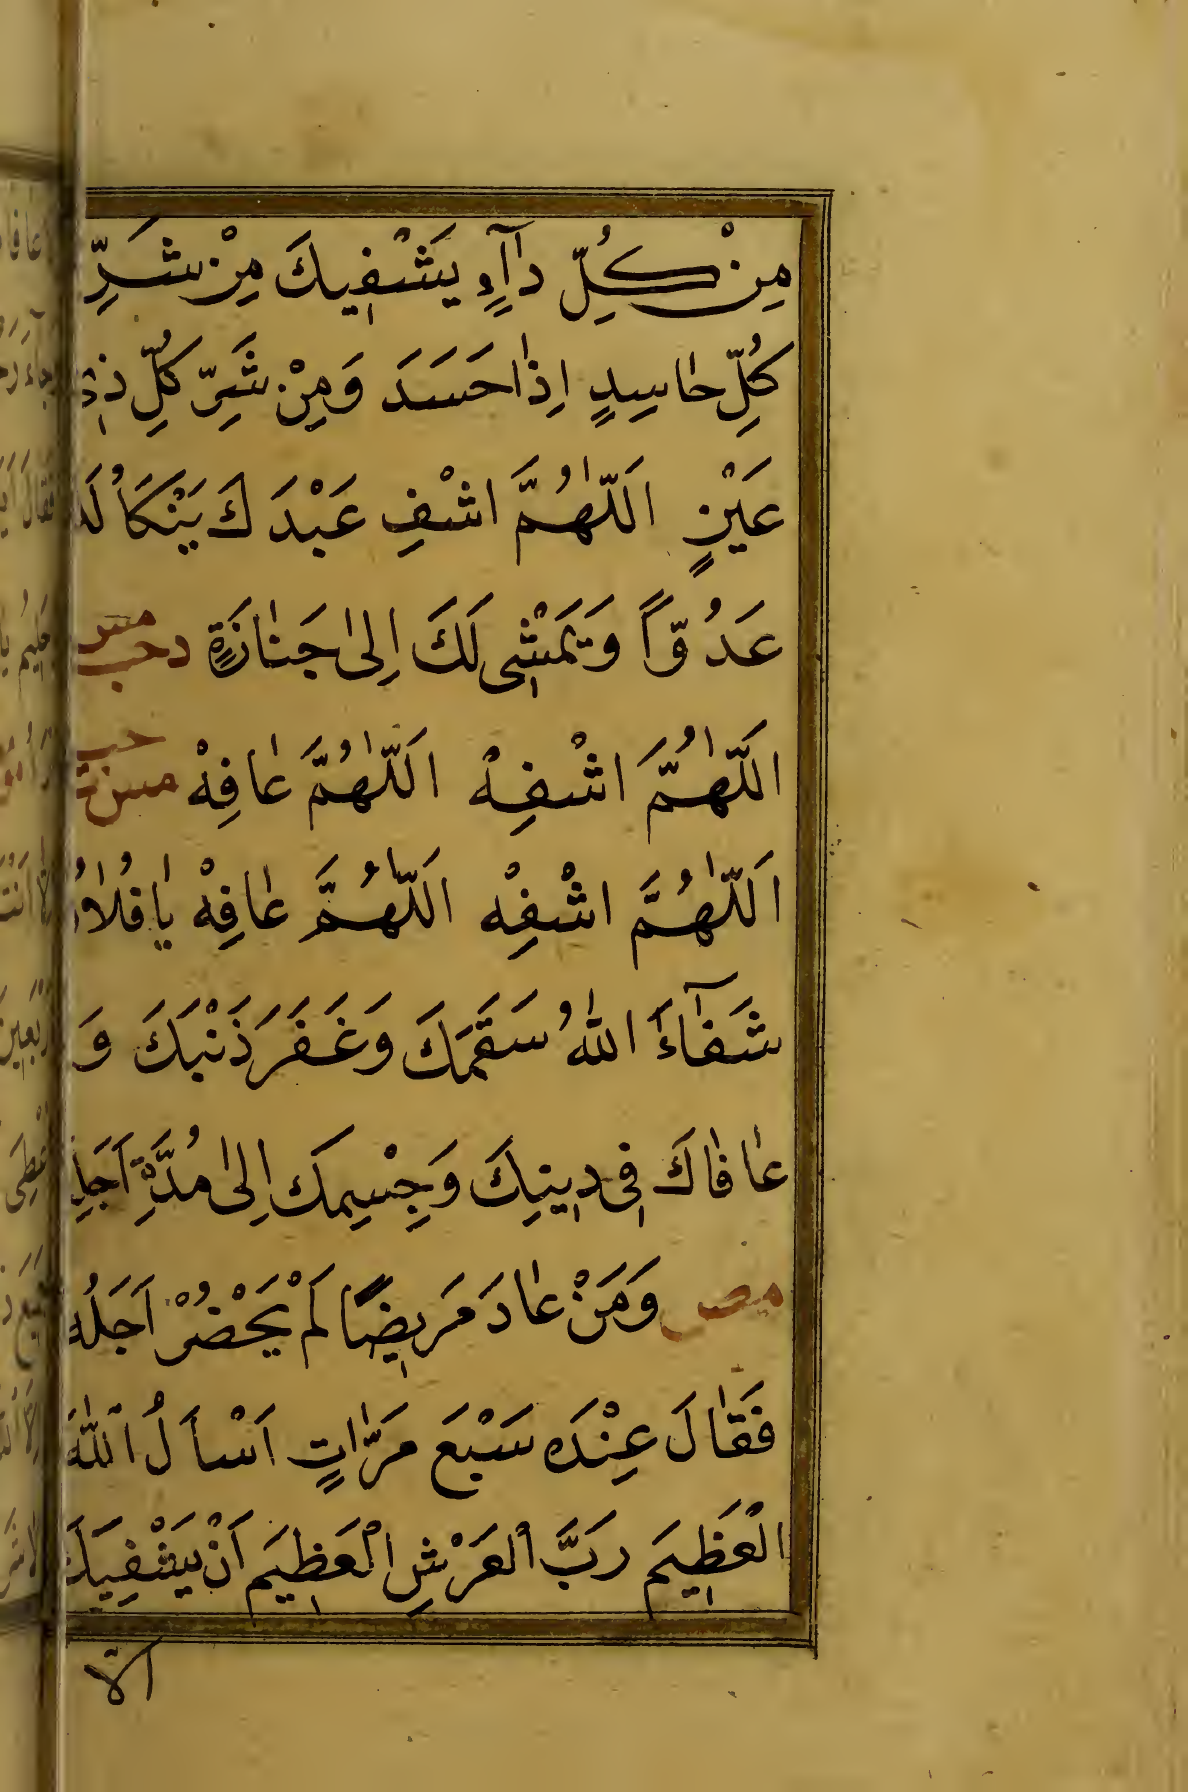 مِنْ كُلِّ دَآءٍ يَشْفِيكَ مِنْ شَرِّ
كُلِّ حٰاسِدٍ اِذٰا حَسَدَ وَمِنْ شَرِّ كُلِّ ذِي
عَيْنٍ اَللّٰهُمَّ اشْفِ عَبْدَكَ يَنْكَأُ لَكَ
عَدُوّاً وَيَمْشِي لَكَ اِلىٰ جَنٰازَةٍ د حب مس
اَللّٰهُمَّ اشْفِهْ اَللّٰهُمَّ عٰافِهْ مس ت حب
اَللّٰهُمَّ اشْفِهْ اَللّٰهُمَّ عٰافِهْ يٰا فُلاٰنُ
شَفٰآءَ اللّٰهُ سَقَمَكَ وَغَفَرَ ذَنْبَكَ وَ
عٰافٰاكَ فِي دِينِكَ وَجِسْمِكَ اِلىٰ مُدَّةِ اَجَلِكَ
مص وَمَنْ عٰادَ مَرِيضًا لَمْ يَحْضُرْ اَجَلُهُ
فَقٰالَ عِنْدَهُ سَبْعَ مَرّٰاتٍ اَسْأَلُ اللّٰهَ
الْعَظِيمَ رَبَّ الْعَرْشِ الْعَظِيمِ اَنْ يَشْفِيَكَ
الا